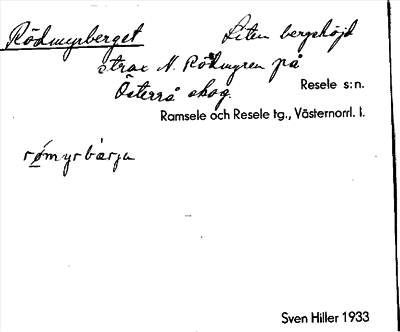 Rödmyrberget Liten bergshöjd
strax N. Rödmyren på
Österrå skog.
Resele s:n.
Ramsele och Resele tg., Västernorrl. l.
Sven Hiller 1933